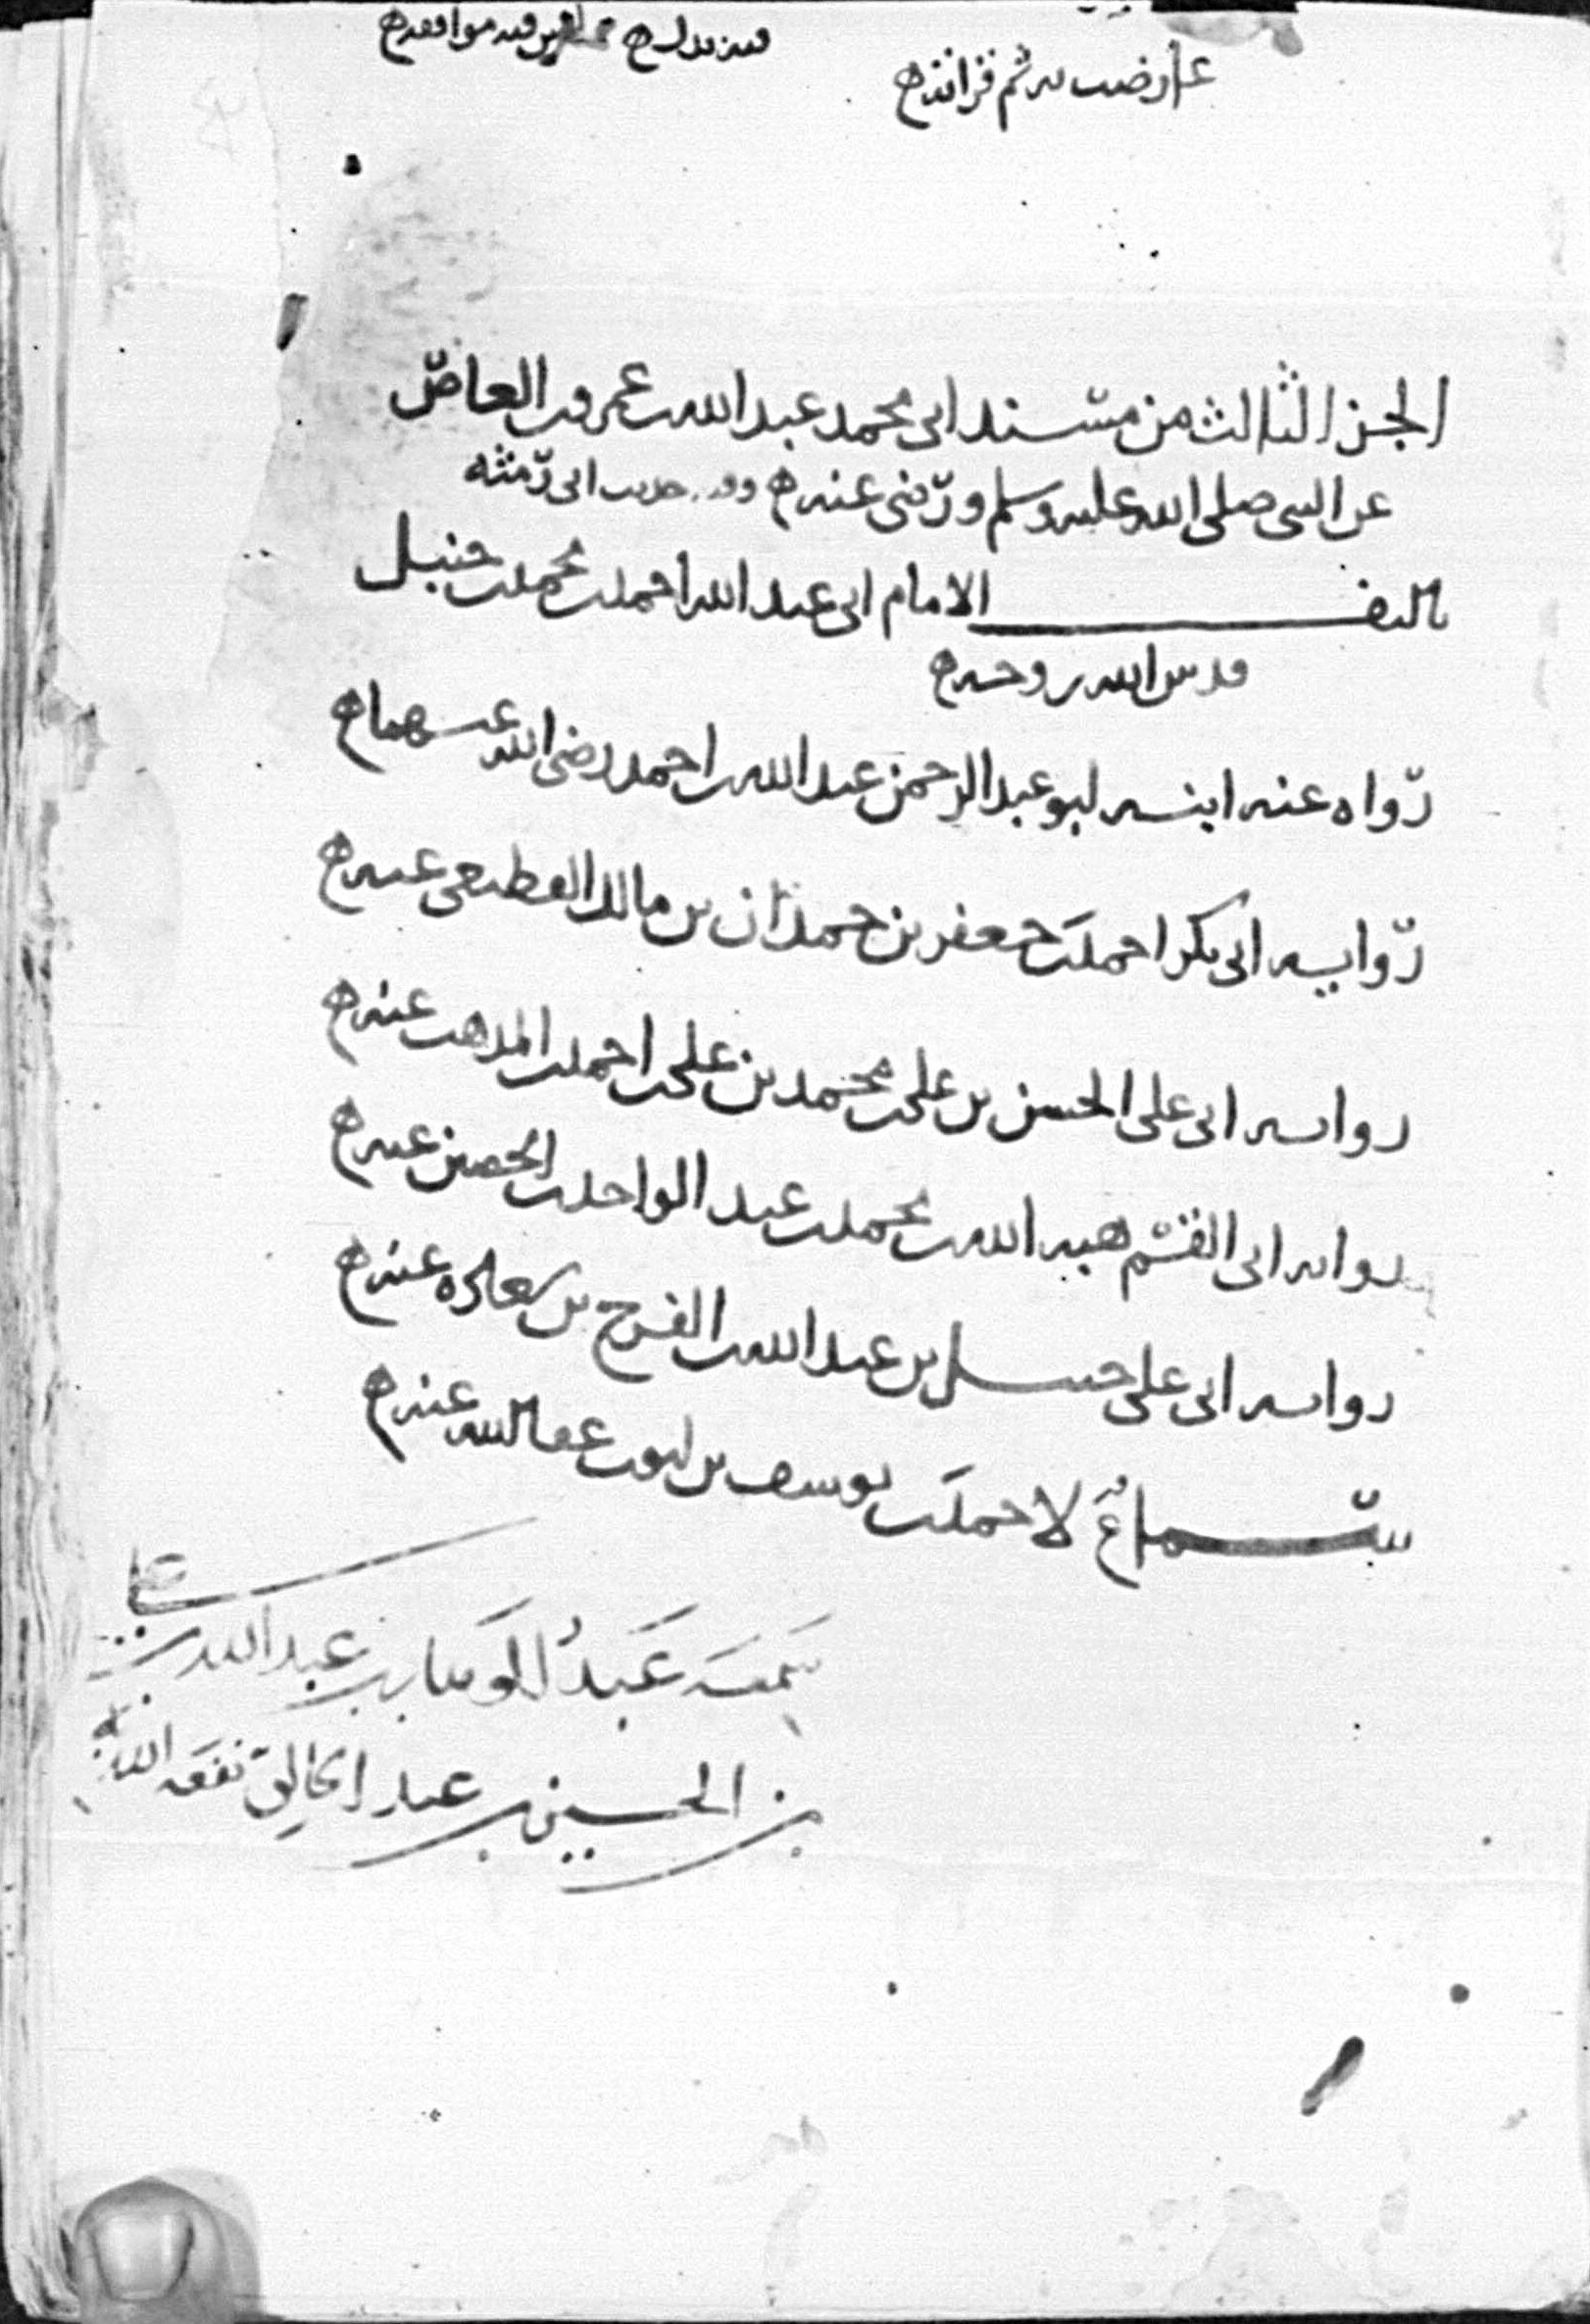 عارضت به ثم قرأته
الجزء الثالث من مسند ابى محمد عبد الله بن عمرو بن العاص
عن النبى صلى الله عليه وسلم ورضى عنه وفيه حديث ابى رمثه
تاليف الامام ابى عبد الله احمد بن محمد بن حنبل
قدس الله روحه
رواه عنه ابنه ابو عبد الرحمن عبد الله بن احمد رضى الله عنهما
روايه ابى بكر احمد بن جعفر بن حمدان بن مالك القطيعى عنه
روايه ابى على الحسن بن على بن محمد بن على بن احمد بن المذهب عنه
روايه ابى القسم هبه الله بن محمد بن عبد الواحد بن الحصين عنه
روايه ابى على حنبل بن عبد الله بن الفرج بن سعاده عنه
سماع لاحمد بن يوسف بن ايوب عفا الله عنه
سمعه عبد الوهاب بن عبد الله بن على
بن الحسين بن عبد الخالق نفعه الله به